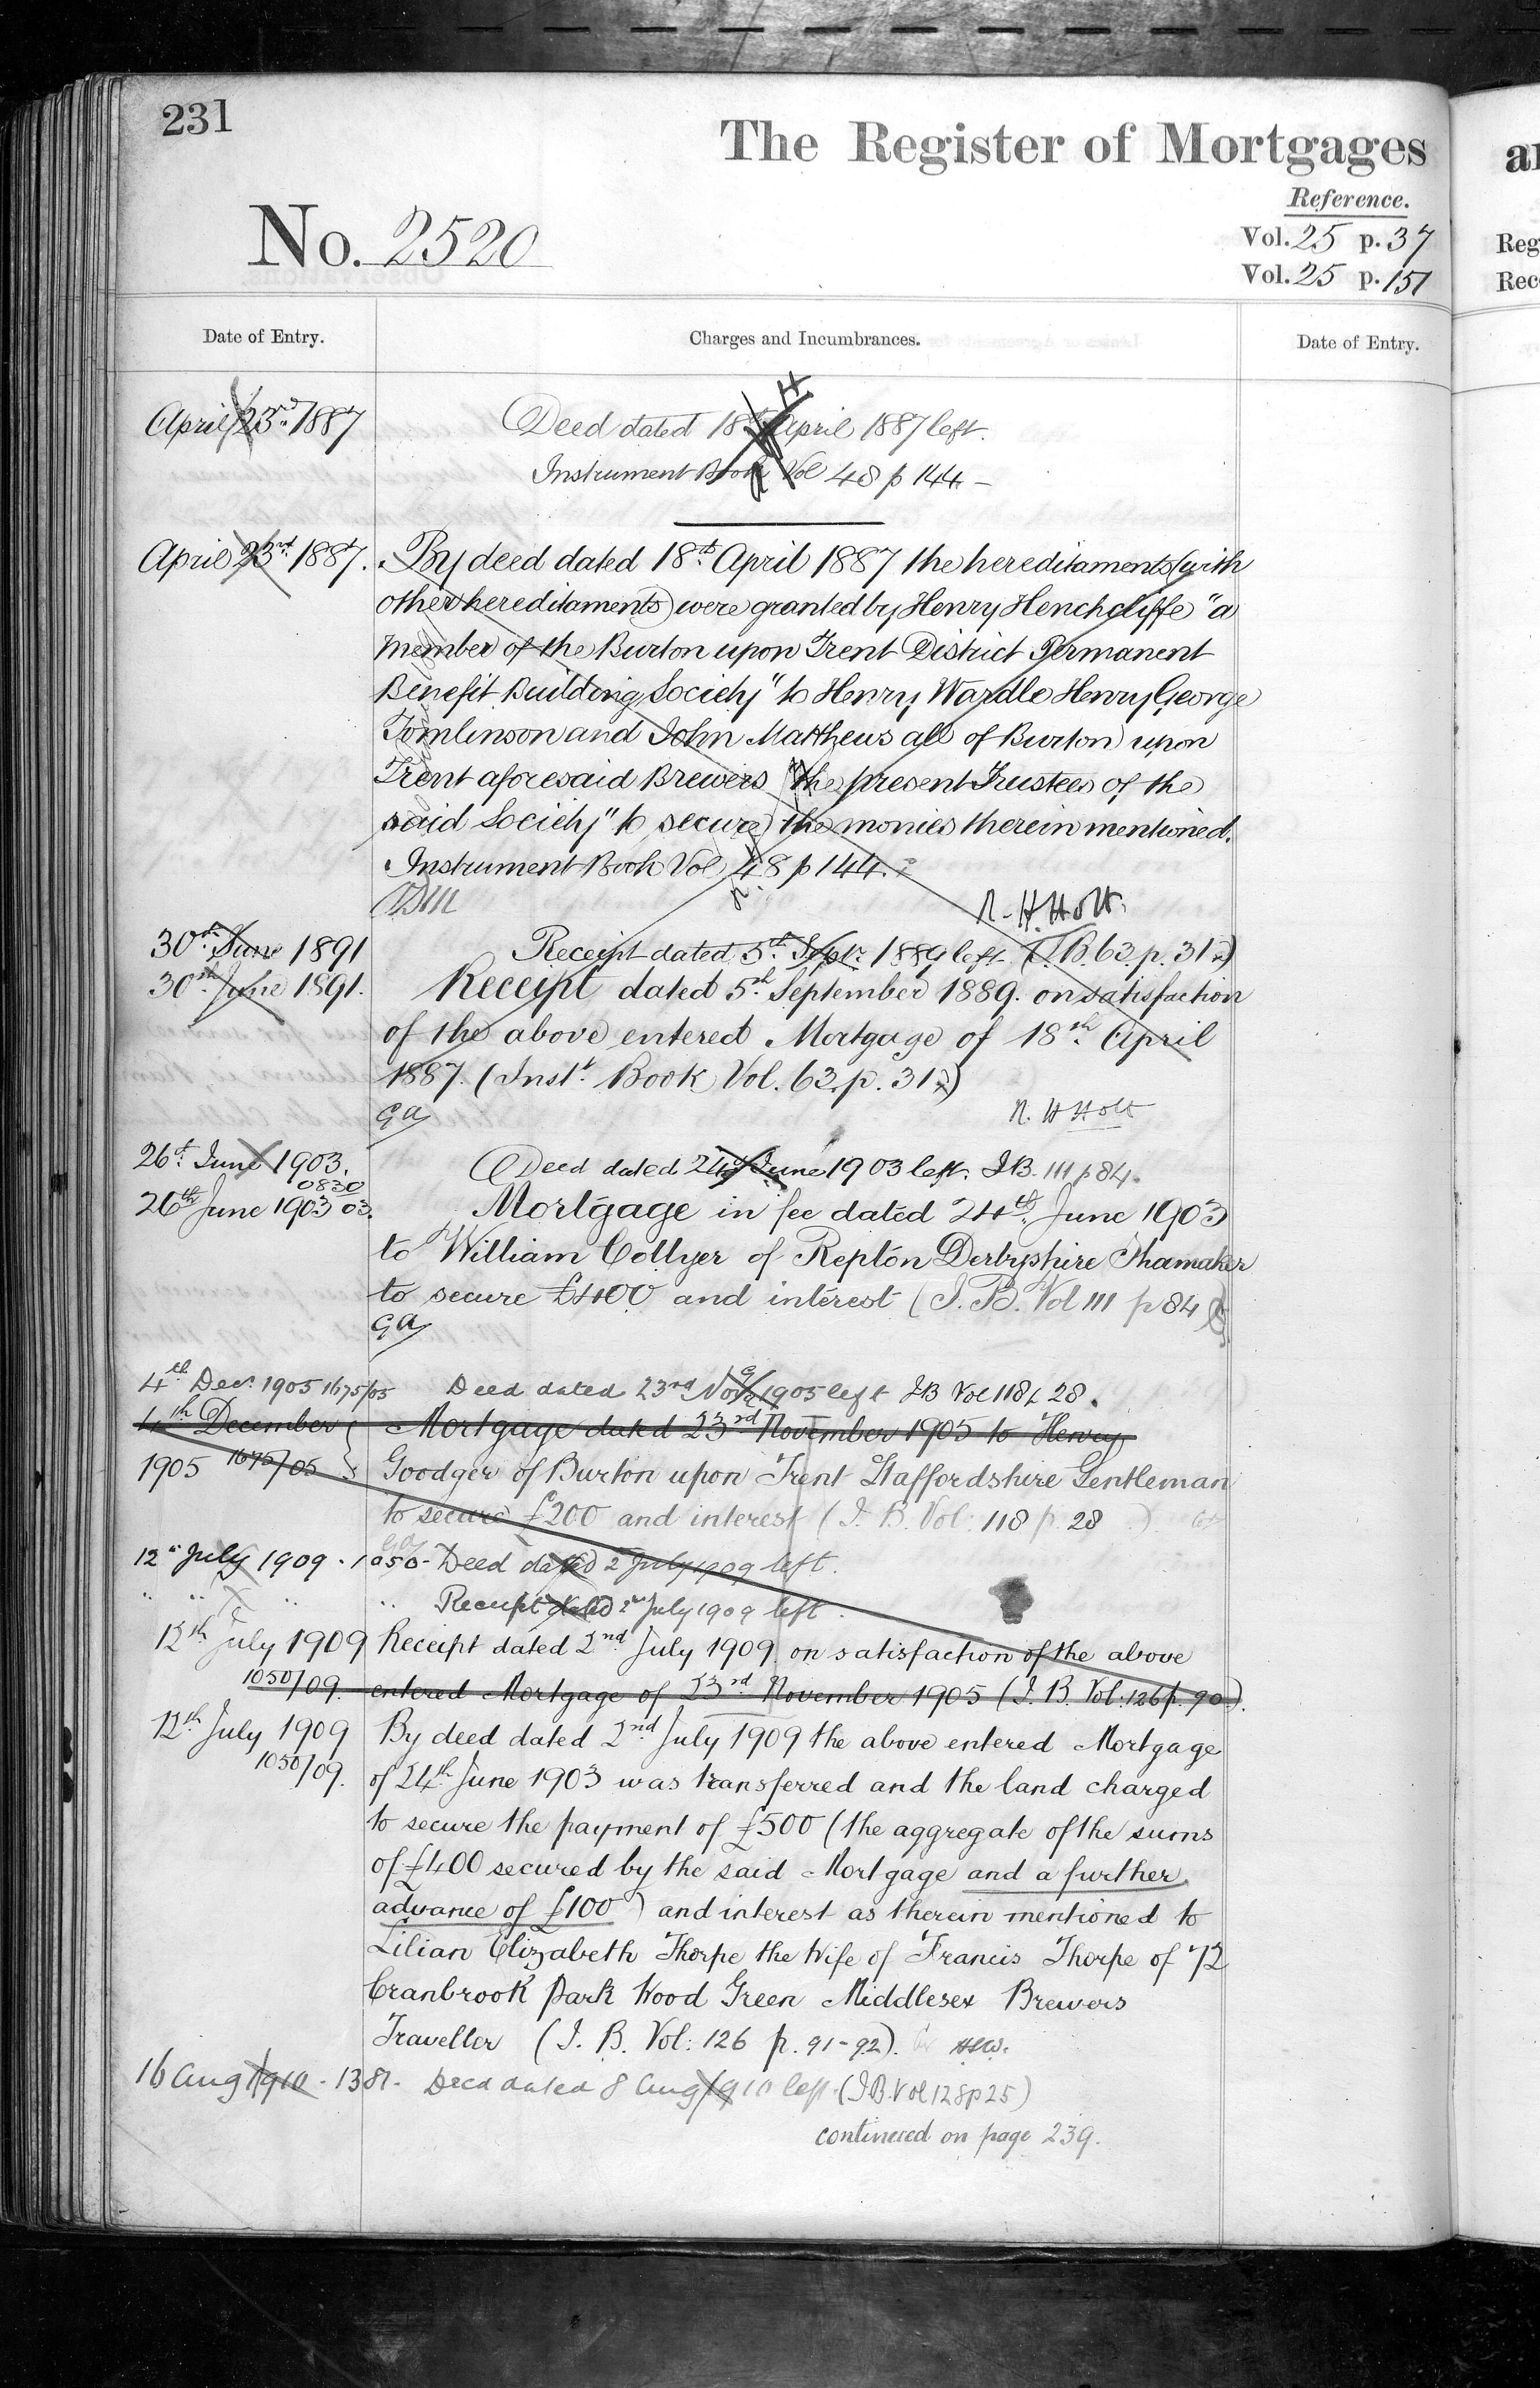 231
The Register of Mortgages
Reference.
No. 2520
Vol. 25 p. 37
Vol. 25 p. 151
Reg
Rec
Date of Entry.
Charges and Incumbrances.
Date of Entry.
April 23rd 1887
Deed dated 18th April 1887 left.
Instrument Book Vol 48 p 144 -
April 23rd 1887. By deed dated 18th April 1887 the hereditaments (with
other hereditaments) were granted by Henry Henchcliffe "a
member of the Burton upon Trent District Permanent
Benefit Building Society" to Henry Wardle Henry George
Tomlinson and John Matthews all of Burton upon
Trent aforesaid Brewers "the present Trustees of the
said Society" to secure the monies therein mentioned.
Instrument Book Vol 48 p 144.
R. H. Holt.
30th June 1891 Receipt dated 5th Sept. 1889 left (I.B. 63. p. 31)
30th June 1891. Receipt dated 5th September 1889. on satisfaction
of the above entered Mortgage of 18th April
1887. (Inst. Book Vol. 63. p. 31)
GA R. H Holt
26th June 1903. Deed dated 24th June 1903 left. I.B. 111 p 84.
0830
26th June 1903 03. Mortgage in fee dated 24th June 1903
to William Collyer of Repton Derbyshire Shoemaker
to secure £400 and interest (I. B. Vol 111 p 84)
GA
4th Decr. 1905 1675/05 Deed dated 23rd Novr 1905 left IB Vol 118 p 28.
4th December Mortgage dated 23rd November 1905 to Henry
1905 1675/05 Goodger of Burton upon Trent Staffordshire Gentleman
to secure £200 and interest (I. B. Vol: 118 p. 28)
12th July 1909 - 1050 - Deed dated 2 July 1909 left.
" " " " Receipt dated 2nd July 1909 left.
12th July 1909 Receipt dated 2nd July 1909 on satisfaction of the above
1050/09. entered Mortgage of 23rd November 1905 (I. B. Vol: 126 p. 90).
12th July 1909 By deed dated 2nd July 1909 the above entered Mortgage
1050/09. of 24th June 1903 was transferred and the land charged
to secure the payment of £500 (the aggregate of the sums
of £400 secured by the said Mortgage and a further
advance of £100) and interest as therein mentioned to
Lilian Elizabeth Thorpe the Wife of Francis Thorpe of 72
Cranbrook Park Wood Green Middlesex Brewers
Traveller (I. B. Vol: 126 p. 91-92).
16 Aug 1910 - 1381 - Deed dated 8 Aug 1910 left (I.B. Vol 128 p 25)
continued on page 239.